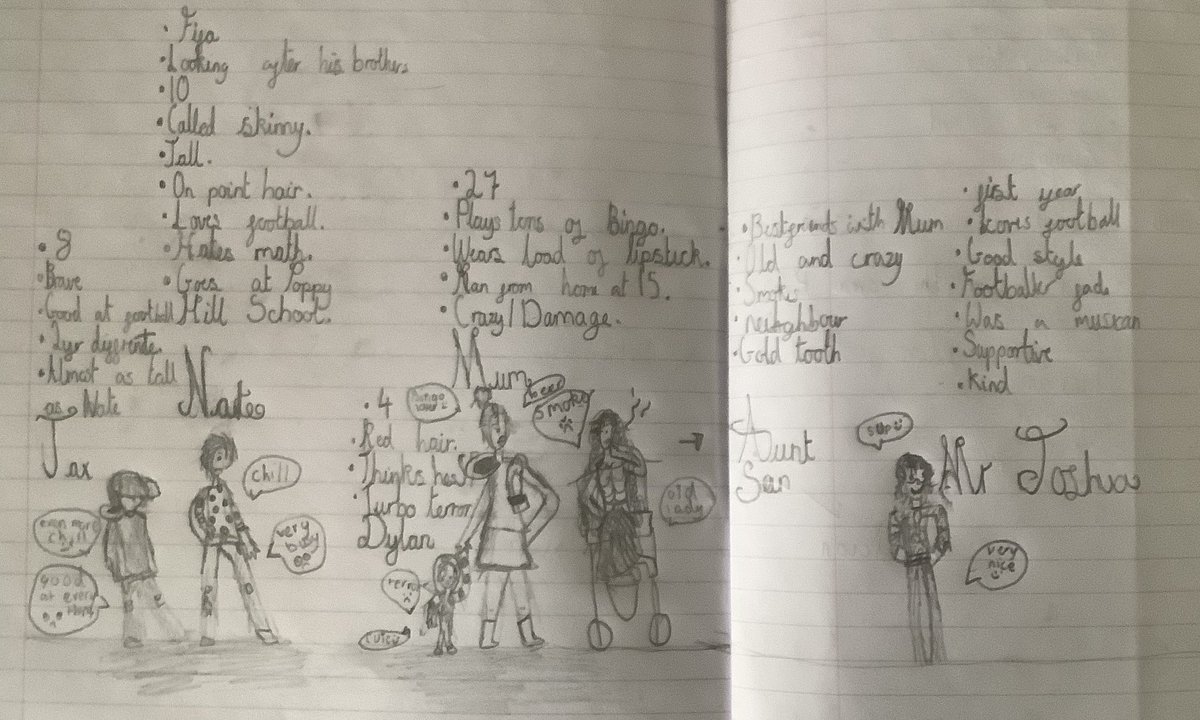 • Fiya
• Looking after his brothers
• 10
• Called skinny.
• Tall.
• On point hair.
• Loves football.
• Hates math.
• Goes at Poppy
Hill School.
Nate
chill
very
• 8
• Brave
• Good at football
•
• Almost as tall
as Nate
Jax
even more
chill
good
at every
thing
• 27
• Plays tons of Bingo.
• Wears load of lipstick.
• Ran from home at 15.
• Crazy/Damage.
Mum
Bingo
smoke
• 4
• Red hair.
• Thinks
• Turbo terror
Dylan
cutey
old
lady
• Bestfriends with Mum
• Old and crazy
• Smokes
• neighbour
• Gold tooth
Aunt
San
• first year
• football
• Good style
• Footballer
• Was a
• Supportive
• Kind
Mr Joshua
sup
very
nice